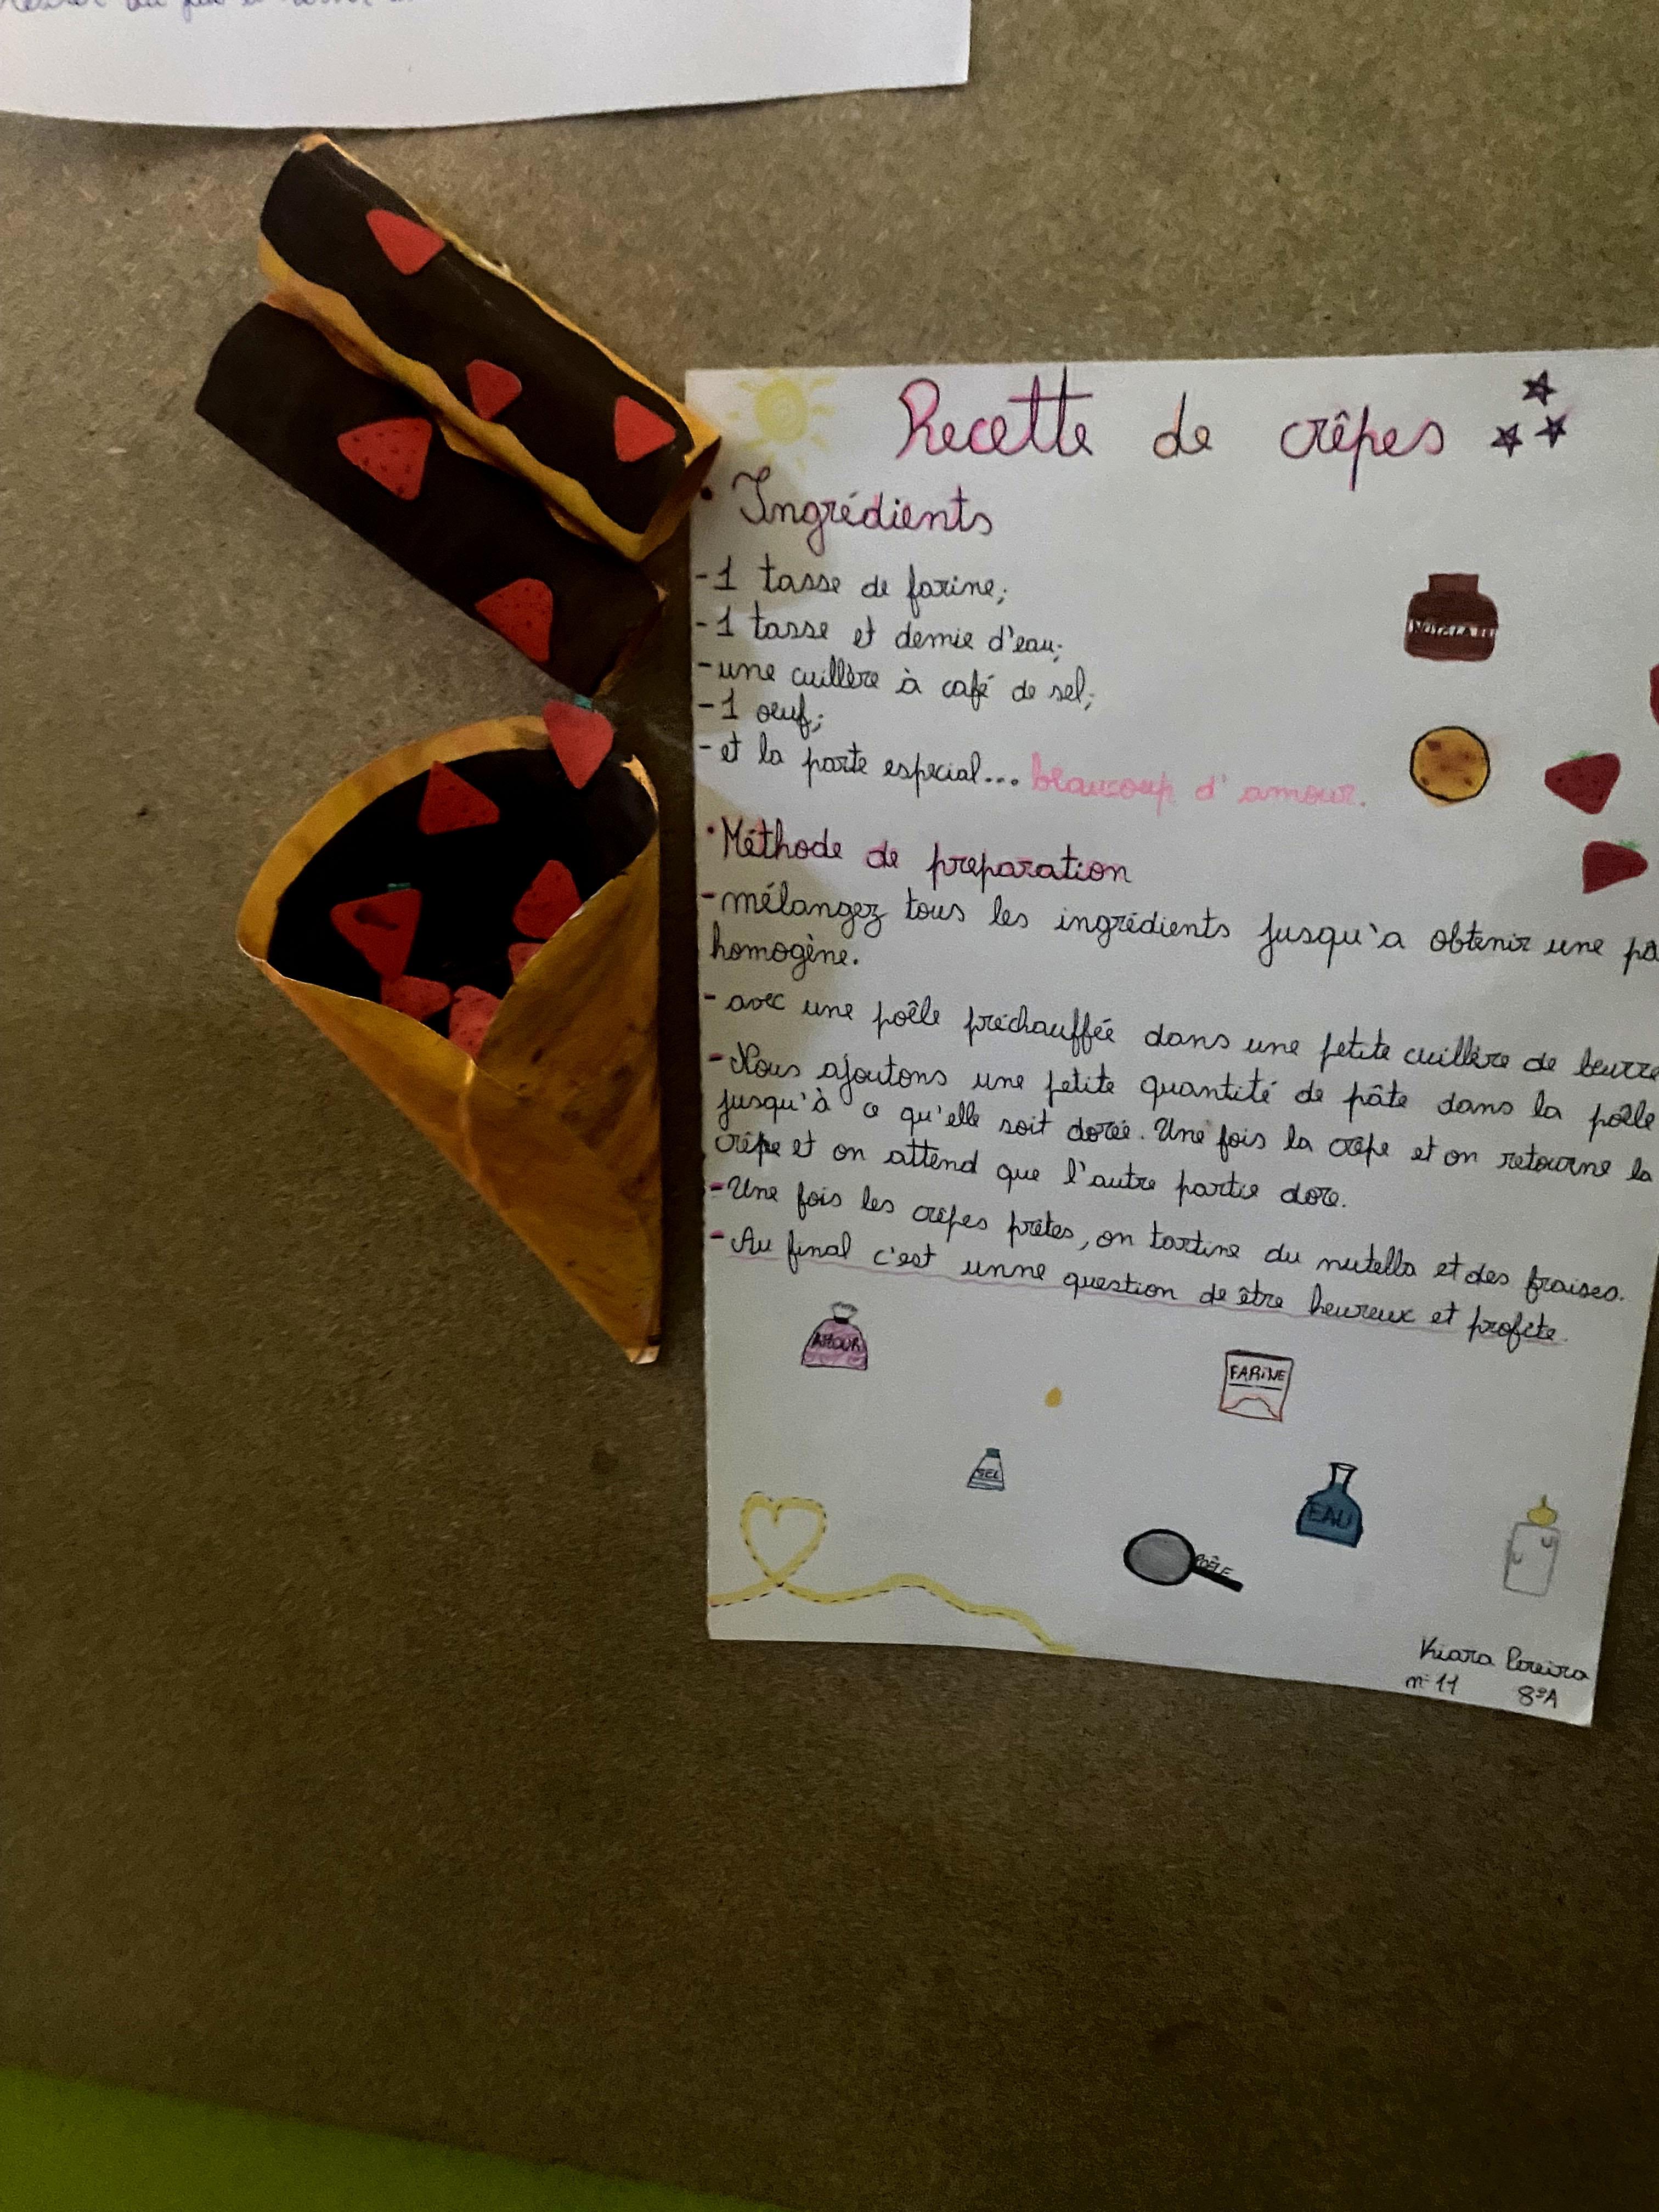 Recette de crêpes
• Ingrédients
-1 tasse de farine;
-1 tasse et demie d'eau;
-une cuillère à café de sel;
-1 oeuf;
-et la parte especial... beaucoup d'amour.
NUTELLA
• Méthode de preparation
-mélangez tous les ingrédients jusqu'a obtenir une
homogène.
- avec une poêle préchauffée dans une petite cuillère de beurre
-Nous ajoutons une petite quantité de pâte dans la poêle
jusqu'à ce qu'elle soit dorée. Une fois la crêpe et on retourne la
crêpe et on attend que l'autre partie dore.
-Une fois les crêpes prêtes, on tartine du nutella et des fraises.
-Au final c'est unne question de être heureux et profite.
AMOUR
FARINE
SEL
EAU
POÊLE
Kiara Pereira
nº 11 8ºA